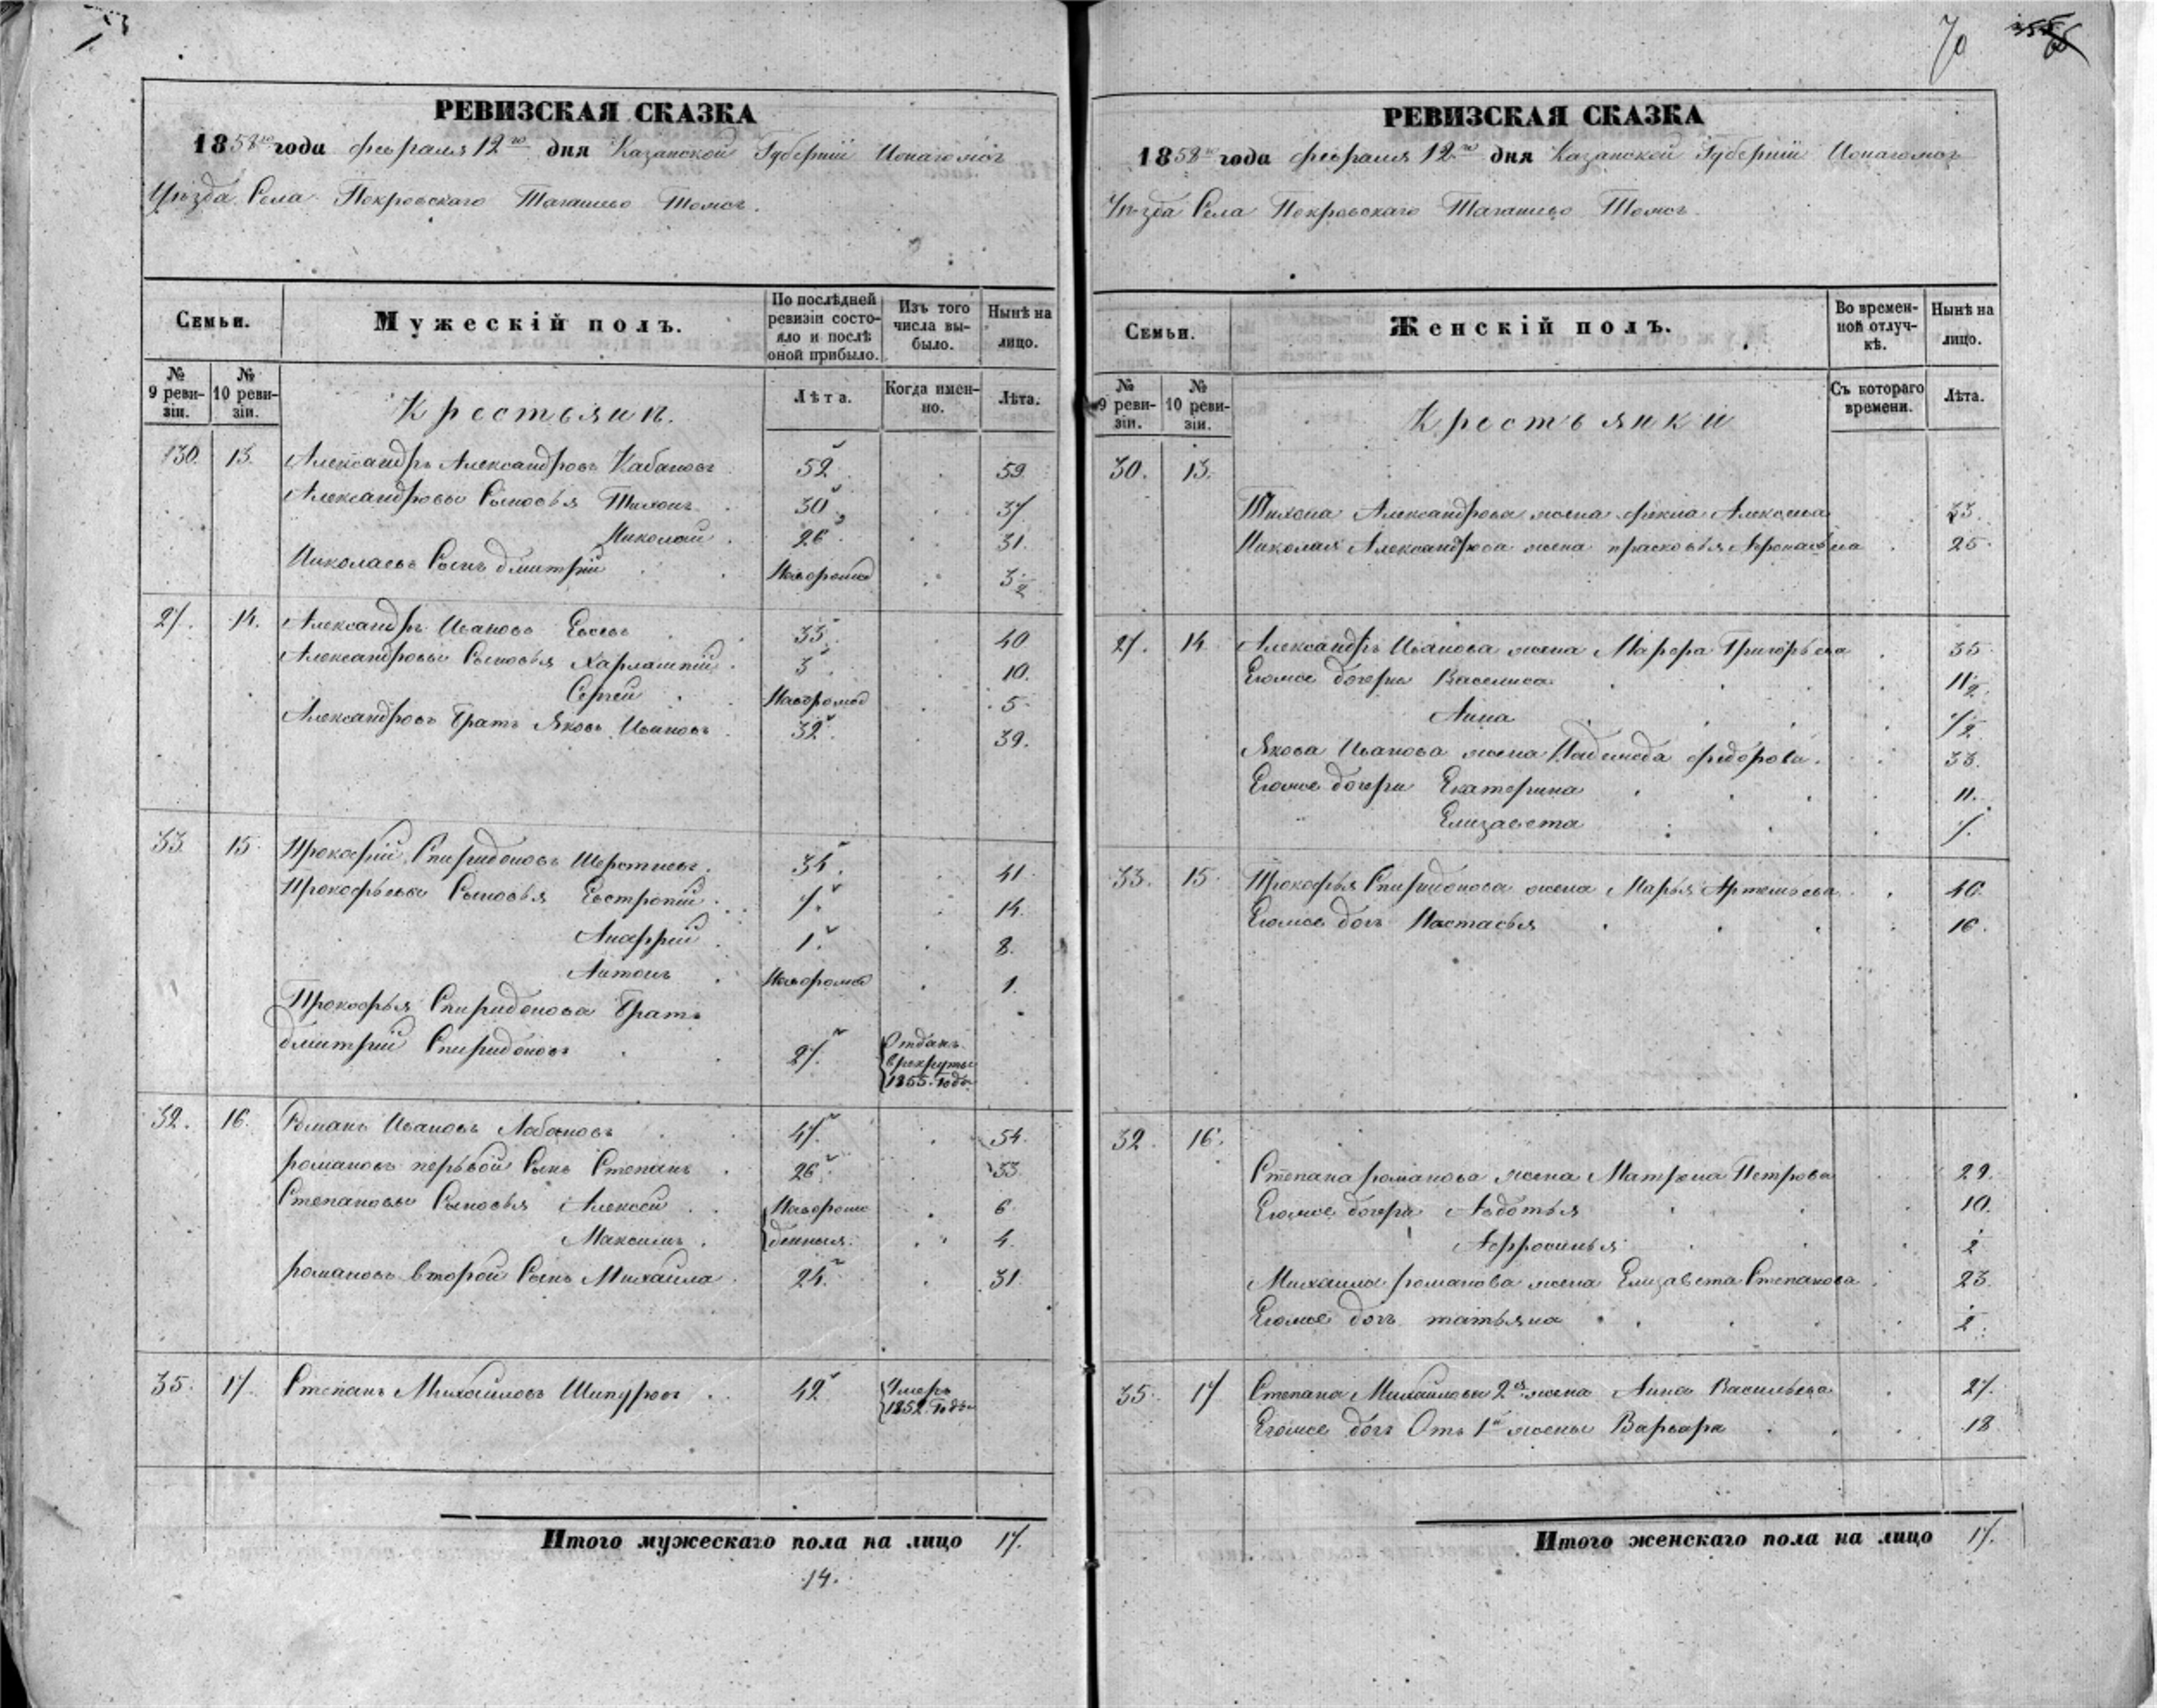 70
РЕВИЗСКАЯ СКАЗКА
1858го года февраля 12го дня Казанской Губернии
Уѣзда Села Покровскаго тожъ.
Семьи.
Мужескій полъ.
По послѣдней ревизіи состояло и послѣ оной прибыло.
Изъ того числа выбыло.
Нынѣ на лицо.
№ 9 ревизіи.
№ 10 ревизіи.
Крестьянъ.
Лѣта.
Когда именно.
Лѣта.
130. 13. Александръ Александровъ Кабановъ 52. 59.
Александровы Сыновья Тихонъ 30. 37
Николай 26. 31.
Николаевъ Сынъ дмитрій Новорожд 3 1/2
27. 14. Александръ Ивановъ Евсевъ 33. 40
Александровы Сыновья Харлампій 3 10.
Сергей Новорожд 5
Александровъ Братъ Яковъ Ивановъ 32. 39.
33 15 Прокофій Спиридоновъ 34. 41
Прокофьевы Сыновья Евстропій 7. 14.
1. 8.
Антонъ Новорожд 1.
Прокофья Спиридонова Братъ
дмитрій Спиридоновъ 27. Отданъ в рекруты 1855 Годъ
32. 16. Романъ Ивановъ Лобановъ 47. 54.
романовъ первой Сынъ Степанъ 26. 33.
Степановы Сыновья Алексей Новорож 6
Максимъ денныя. 4.
романовъ второй Сынъ Михайла 24. 31.
35. 17. Степанъ Михайловъ 42. Умеръ 1852 Годъ
Итого мужескаго пола на лицо 17.
14.
РЕВИЗСКАЯ СКАЗКА
1858го года февраля 12го дня Казанской Губернии
Уѣзда Села Покровскаго Тожъ
Семьи.
Женскій полъ.
Во временной отлучкѣ.
Нынѣ на лицо.
№ 9 ревизіи.
№ 10 ревизіи.
Крестьянки
Съ котораго времени.
Лѣта.
30. 13.
Тихона Александрова жена Фекла Алексѣева 33.
Николая Александрова жена прасковья Афонасьева 25
27. 14 Александръ Иванова жена Марфа Григорьева 35
Егоже дочери Василиса 11 1/2
Анна 7 1/2
Якова Иванова жена Надежда федорова 33.
Егоже дочери Екатерина 11.
Елизавета 7.
33. 15 Прокофья Спиридонова жена Марья Артемьева 40.
Егоже доч Настасья 16.
32 16.
Степана романова жена Матрена Петрова 29.
Егоже дочери Авдотья 10.
Афросинья 2
Михайла романова жена Елизавета Степанова 23.
Егоже доч татьяна
35. 17 Степана Михайлова 2я жена Анна Васильева 27.
Егоже доч Отъ 1й жены Варвара 18
Итого женскаго пола на лицо 17.